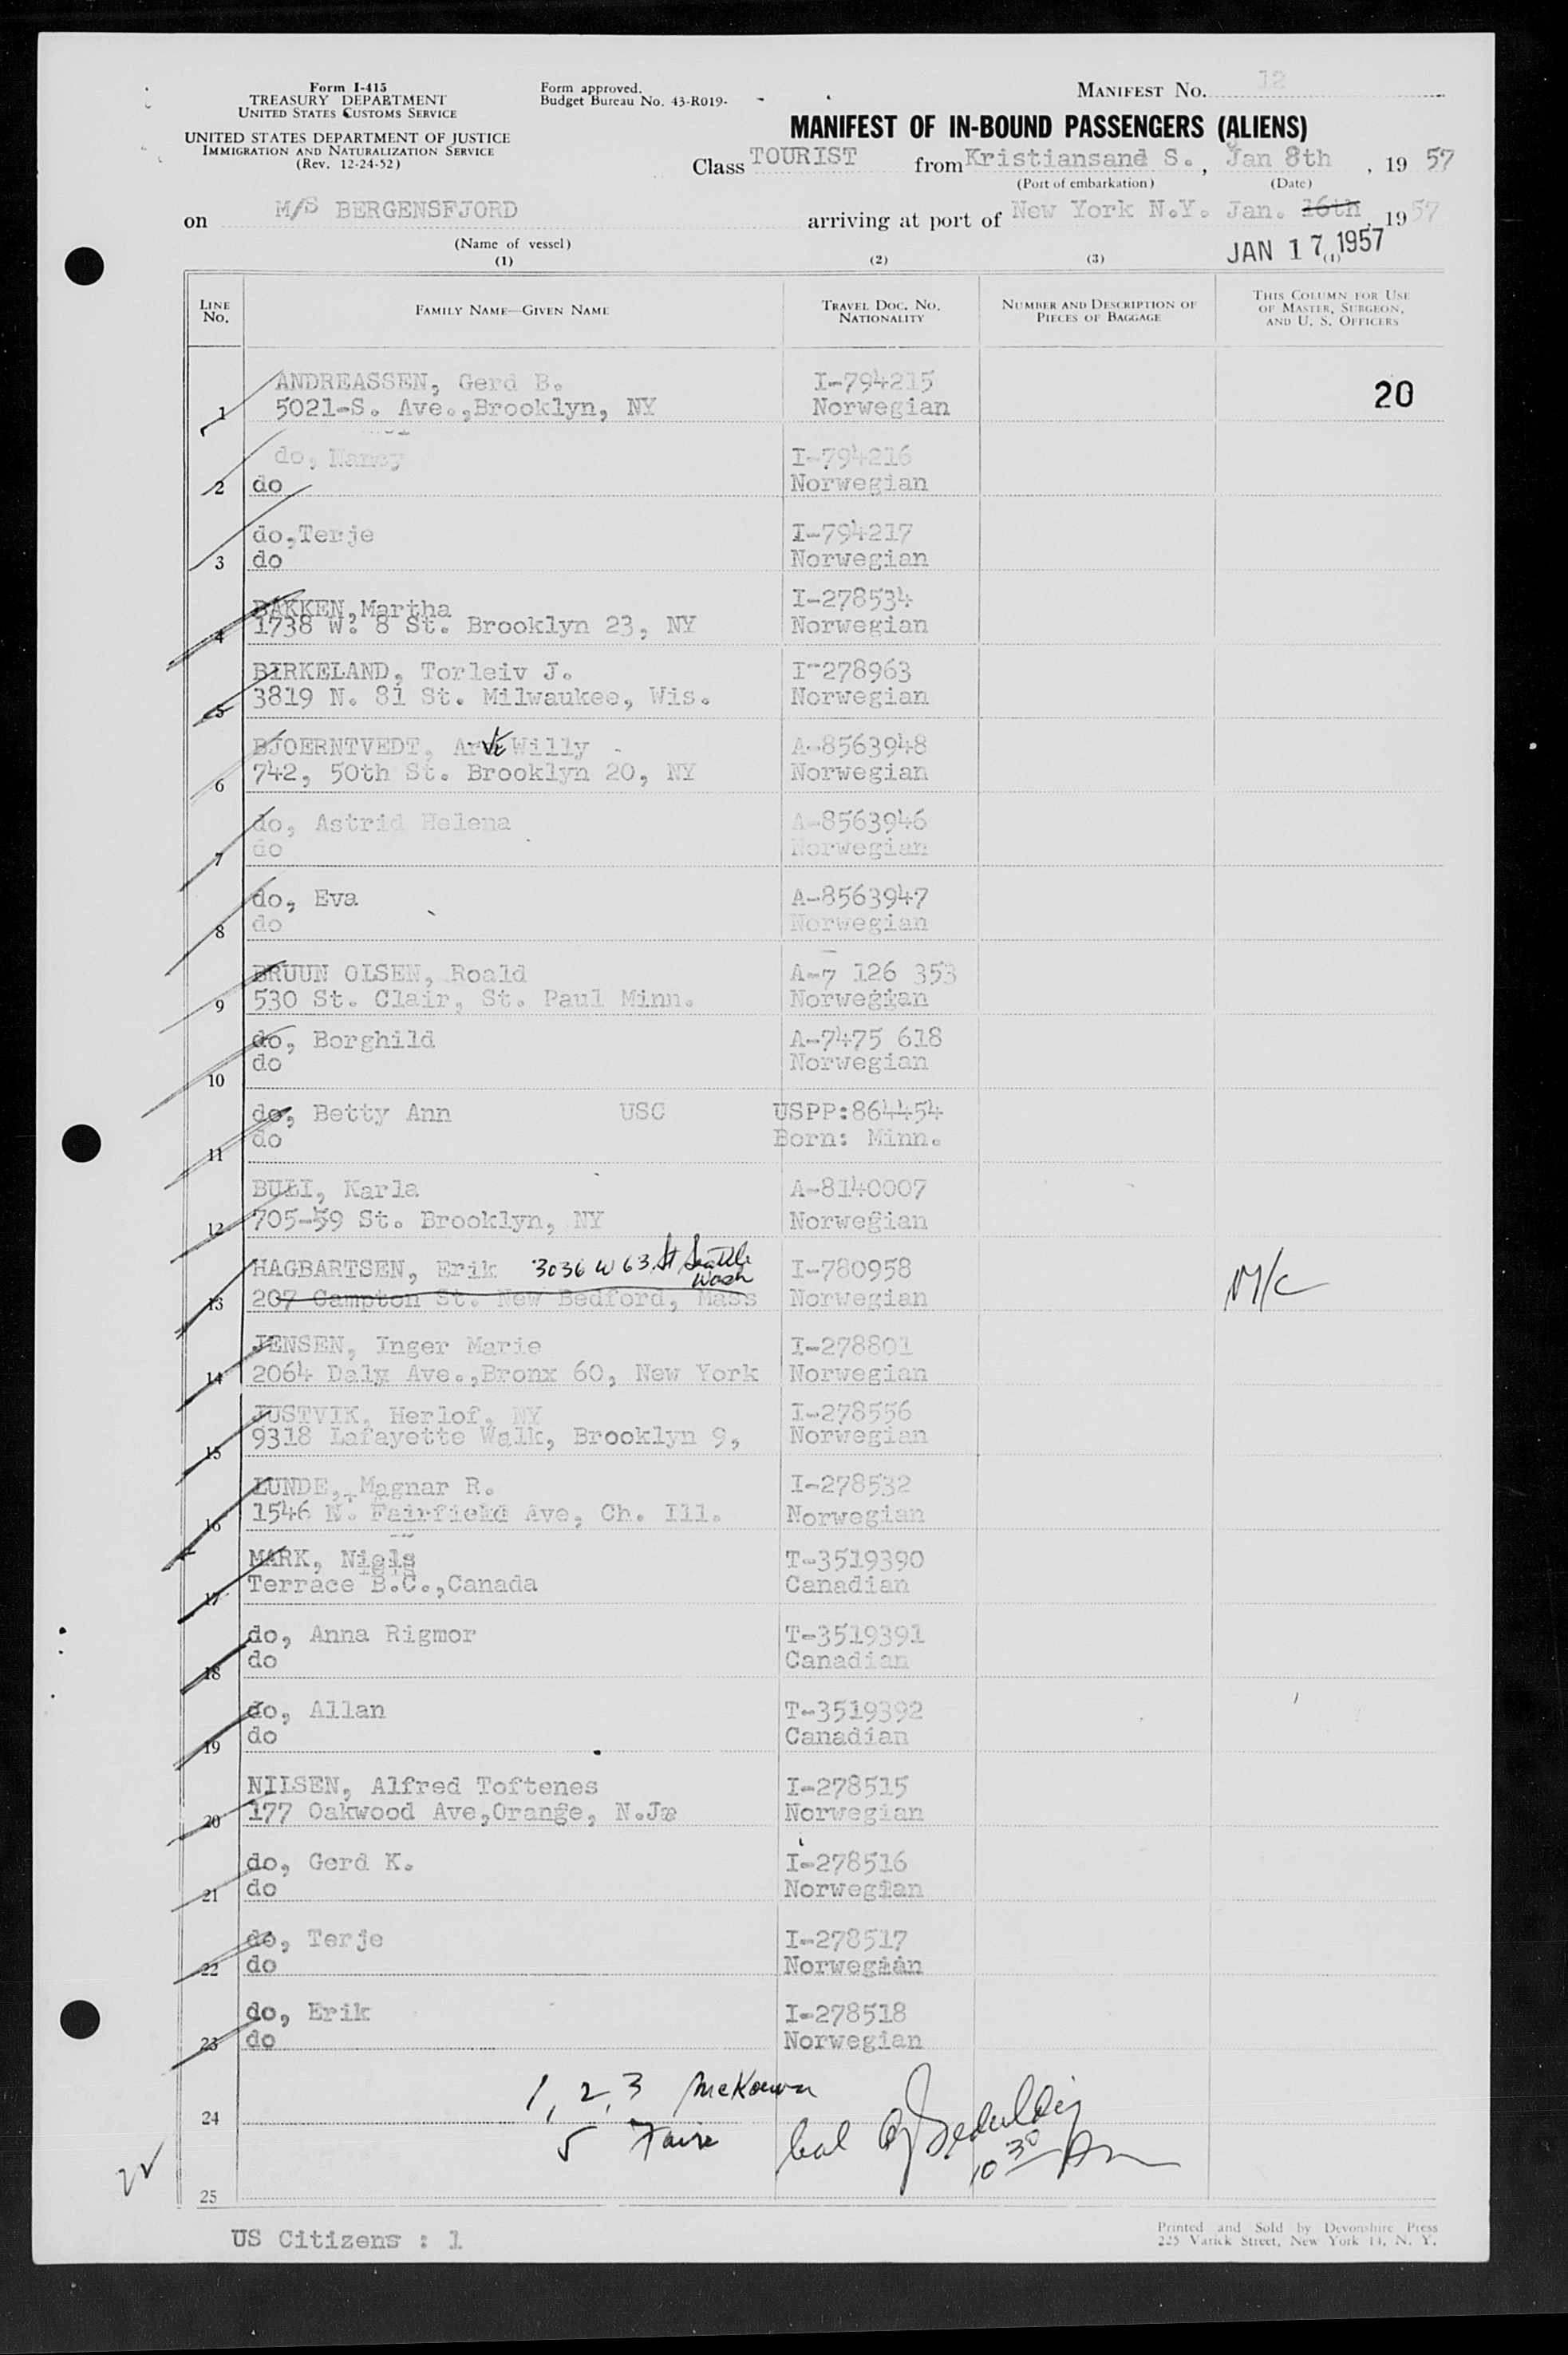 Form I-415
TREASURY DEPARTMENT
UNITED STATES CUSTOMS SERVICE
UNITED STATES DEPARTMENT OF JUSTICE
IMMIGRATION AND NATURALIZATION SERVICE
(Rev. 12-24-52)
Form approved.
Budget Bureau No. 43-R019-
MANIFEST No. 12
MANIFEST OF IN-BOUND PASSENGERS (ALIENS)
Class TOURIST from Kristiansand S., Jan 8th, 19 57
(Port of embarkation) (Date)
on M/S BERGENSFJORD arriving at port of New York N.Y. Jan. 16th, 19 57
(Name of vessel) JAN 17 1957
(1) (2) (3) (4)
LINE No. FAMILY NAME—GIVEN NAME TRAVEL DOC. NO. NATIONALITY NUMBER AND DESCRIPTION OF PIECES OF BAGGAGE THIS COLUMN FOR USE OF MASTER, SURGEON, AND U. S. OFFICERS
ANDREASSEN, Gerd B. I-794215 20
1 5021-S. Ave.,Brooklyn, NY Norwegian
do, Nancy I-794216
2 do Norwegian
do,Terje I-794217
3 do Norwegian
BAKKEN,Martha I-278534
4 1738 W. 8 St. Brooklyn 23, NY Norwegian
BIRKELAND, Torleiv J. I-278963
5 3819 N. 81 St. Milwaukee, Wis. Norwegian
BJOERNTVEDT, Arve Willy A-8563948
6 742, 50th St. Brooklyn 20, NY Norwegian
do, Astrid Helena A-8563946
7 do Norwegian
do, Eva A-8563947
8 do Norwegian
BRUUN OLSEN, Roald A-7 126 353
9 530 St. Clair, St. Paul Minn. Norwegian
do, Borghild A-7475 618
10 do Norwegian
do, Betty Ann USC USPP:864454
11 do Born: Minn.
BULI, Karla A-8140007
12 705-59 St. Brooklyn, NY Norwegian
HAGBARTSEN, Erik 3036 W 63 St Seattle Wash I-780958
13 207 Campton St. New Bedford, Mass Norwegian M/c
JENSEN, Inger Marie I-278801
14 2064 Daly Ave.,Bronx 60, New York Norwegian
JUSTVIK, Herlof, NY I-278556
15 9318 Lafayette Walk, Brooklyn 9, Norwegian
LUNDE, Magnar R. I-278532
16 1546 N. Fairfield Ave, Ch. Ill. Norwegian
MARK, Niels T-3519390
17 Terrace B.C.,Canada Canadian
do, Anna Rigmor T-3519391
18 do Canadian
do, Allan T-3519392
19 do Canadian
NILSEN, Alfred Toftenes I-278515
20 177 Oakwood Ave,Orange, N.J. Norwegian
do, Gerd K. I-278516
21 do Norwegian
do, Terje I-278517
22 do Norwegian
do, Erik I-278518
23 do Norwegian
1, 2, 3 McKowen
24
5
10 30 Am
22
25
US Citizens : 1
Printed and Sold by Devonshire Press
225 Varick Street, New York 14, N. Y.